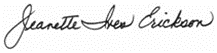 Jeanette Ives Erickson